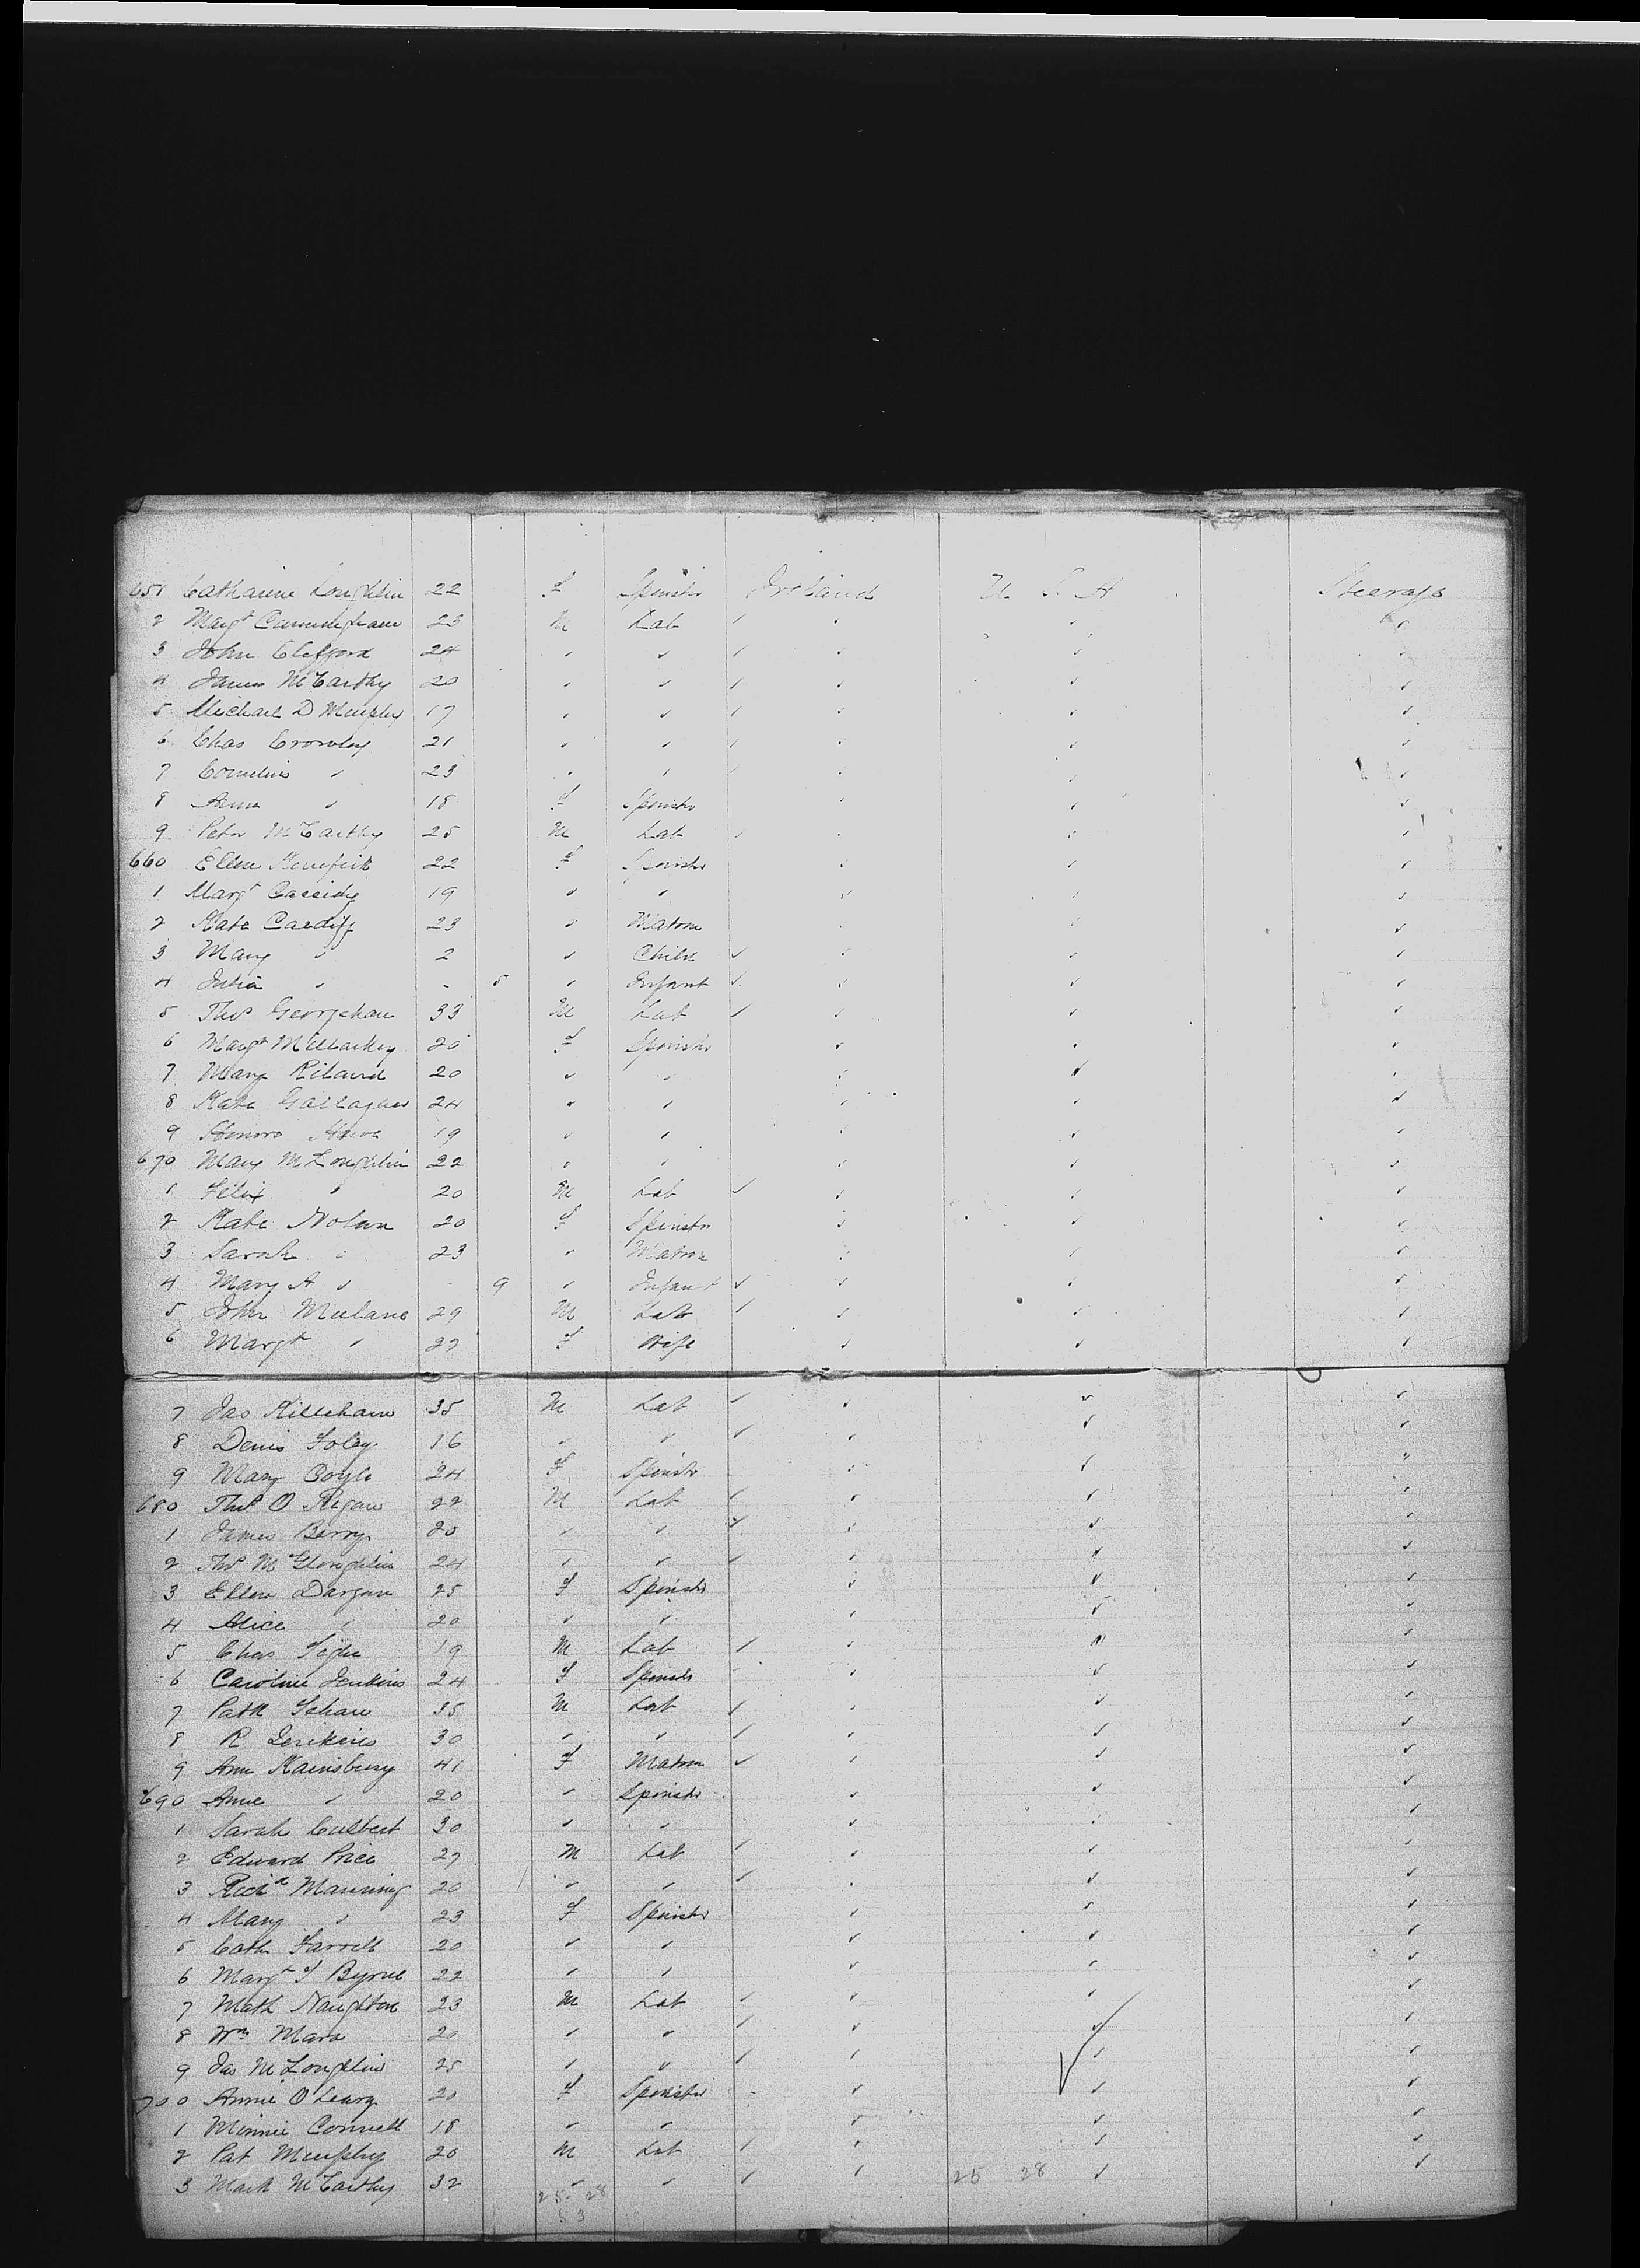 651 Catharine Loughlin 22 F Spinstr Ireland U. S. A Steerage
2 Margt Cunningham 23 M Lab ✓ " " "
3 John Clifford 24 " " ✓ " " "
4 James McCarthy 20 " " ✓ " " "
5 Michael D Murphy 17 " " ✓ " " "
6 Chas Crowley 21 " " ✓ " " "
7 Cornelius " 23 " " ✓ " " "
8 Anna " 18 F Spinstr " " "
9 Peter McCarthy 25 M Lab ✓ " " "
660 Ellen 22 F Spinstr " " "
1 Margt Cassidy 19 " " " " "
2 Kate Cardiff 23 " Matron " " "
3 Mary " 2 " Child ✓ " " "
4 Julia " - 5 " Infant ✓ " " "
5 Thos Georghan 33 M Lab ✓ " " "
6 Margt Mullarkey 20 F Spinstr " " "
7 Mary Riland 20 " " " " "
8 Kate Gallagher 24 " " " " "
9 Honora 19 " " " " "
670 Mary McLoughlin 22 " " " " "
1 Felix " 20 M Lab ✓ " " "
2 Kate Nolan 20 F Spinstr " " "
3 Sarah " 23 " Matron " " "
4 Mary A " - 9 " Infant ✓ " " "
5 John Mulane 29 M Lab ✓ " " "
6 Margt " 27 F Wife " " "
7 Jas Killehan 35 M Lab ✓ " " "
8 Denis Foley 16 " " ✓ " " "
9 Mary Coyle 24 F Spinstr " " "
680 Thos O Regan 22 M Lab ✓ " " "
1 James Berry 20 " " ✓ " " "
2 Thos McGloughlin 24 " " ✓ " " "
3 Ellen Dargan 25 F Spinstr " " "
4 Alice " 20 " " " " "
5 Chas Tighe 19 M Lab ✓ " " "
6 Caroline Jenkins 24 F Spinstr " " "
7 Patk 35 M Lab ✓ " " "
8 R Jenkins 30 " " ✓ " " "
9 Ann Hainsbury 41 F Matron ✓ " " "
690 Annie " 20 " Spinstr " " "
1 Sarah Culbert 30 " " " " "
2 Edward Price 27 M Lab ✓ " " "
3 Richd Manning 20 " " ✓ " " "
4 Mary " 23 F Spinstr " " "
5 Cath Farrell 20 " " " " "
6 Margt J Byrne 22 " " " " "
7 Math Naughton 23 M Lab ✓ " " "
8 Wm Mara 20 " " ✓ " " "
9 Jas McLoughlin 25 " " ✓ " " "
700 Annie O'Leary 20 F Spinstr " " "
1 Minnie Connell 18 " " " " "
2 Pat Murphy 20 M Lab ✓ " " "
3 Mark McCarthy 32 " " ✓ " 25 28 " "
25 28
53